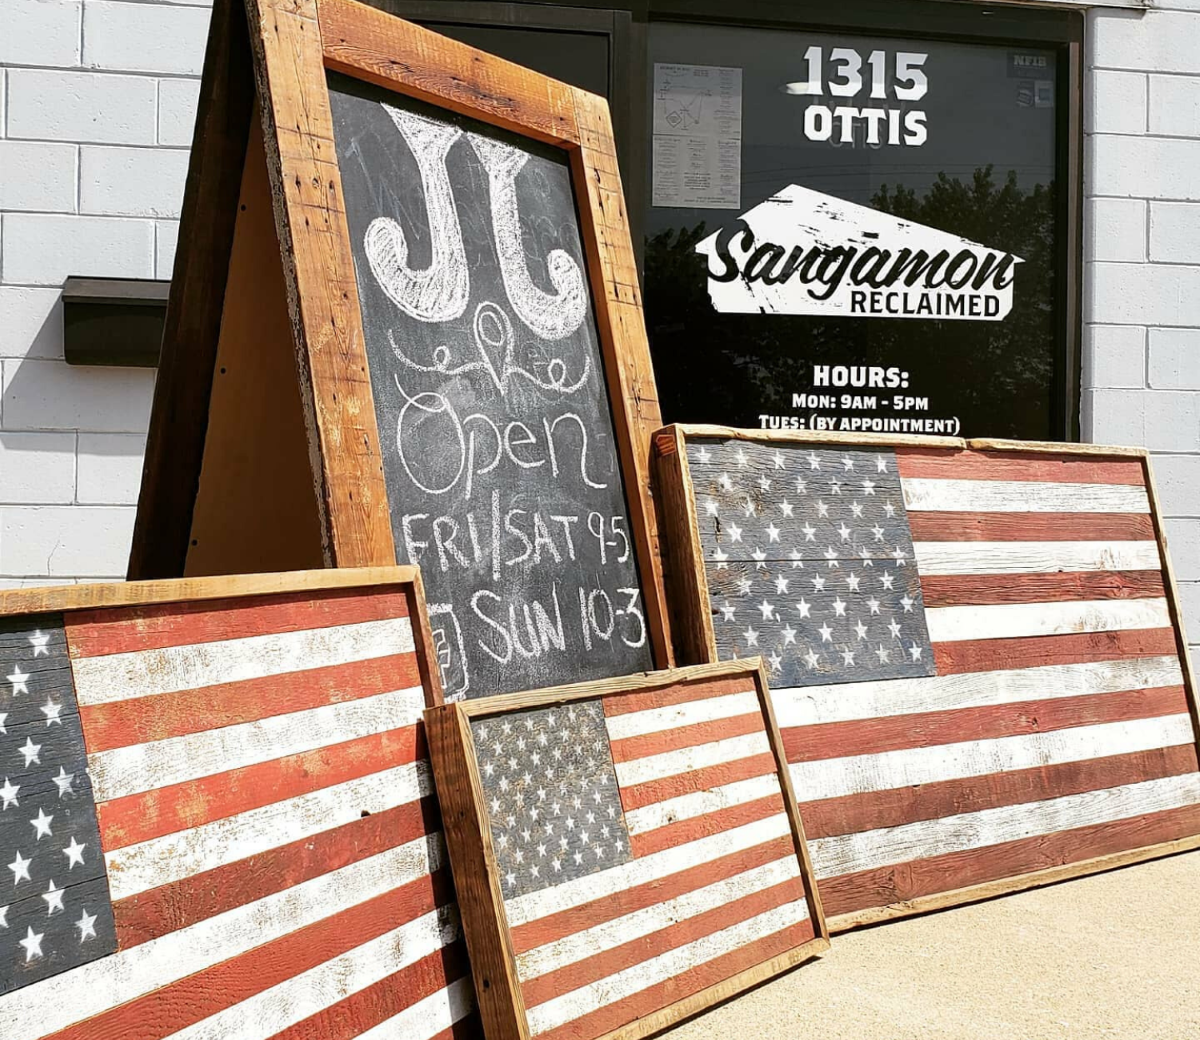 JL
Open
FRI/SAT 9-5
SUN 10-3
1315
OTTIS
NFIB
Sangamon
RECLAIMED
HOURS:
MON: 9AM - 5PM
TUES: (BY APPOINTMENT)